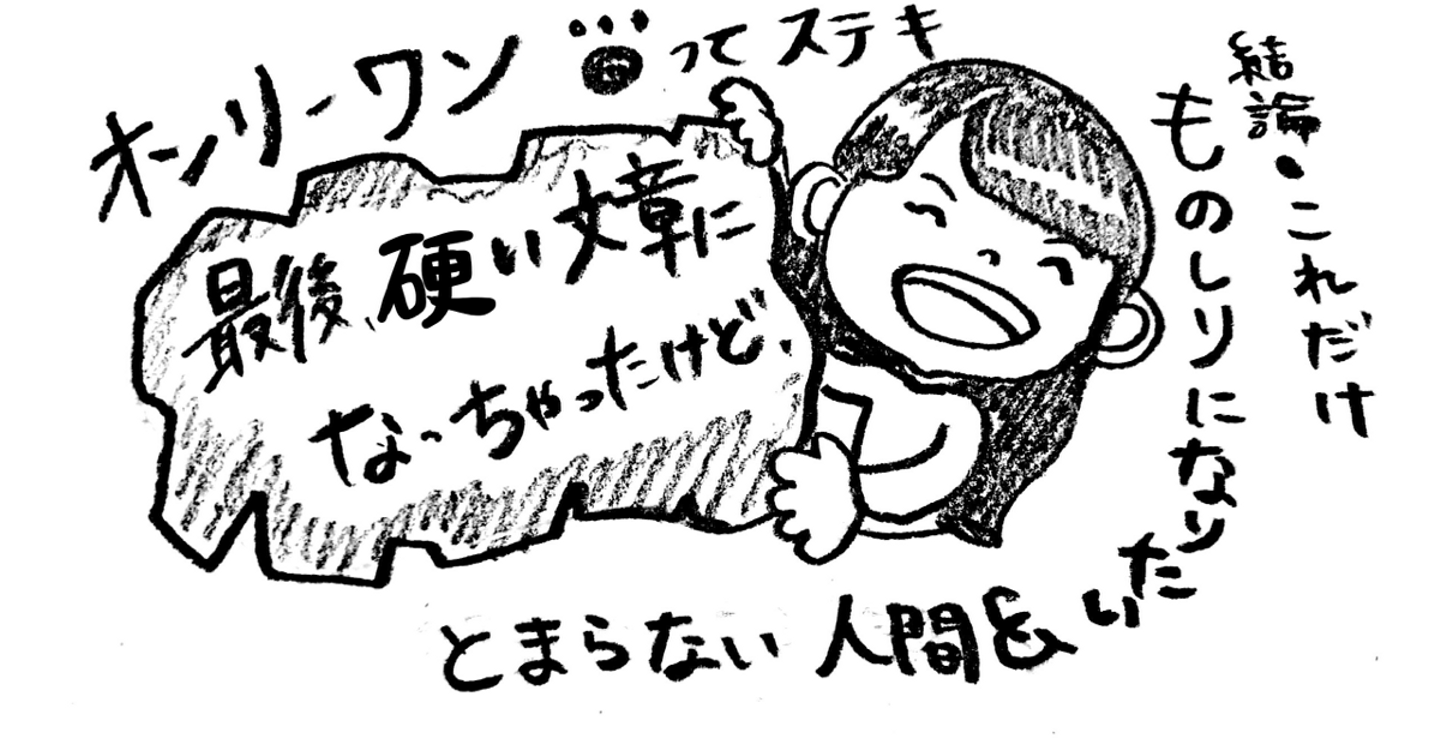 オンリーワン
ってステキ
最後、硬い文章に
なっちゃったけど、
結論・これだけ
ものしりになり
たい
人間&
とまらない